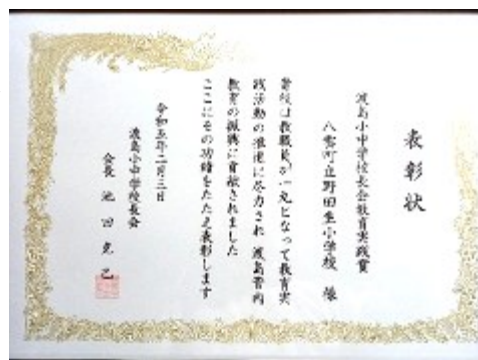 表彰状
渡島小中学校長会教育実践賞
八雲町立野田生小学校 様
貴校は教職員が一丸となって教育実
践活動の推進に尽力され 渡島管内
教育の振興に貢献されました
ここにその功績をたたえ表彰します
令和五年二月三日
渡島小中学校長会
会長 池田克己